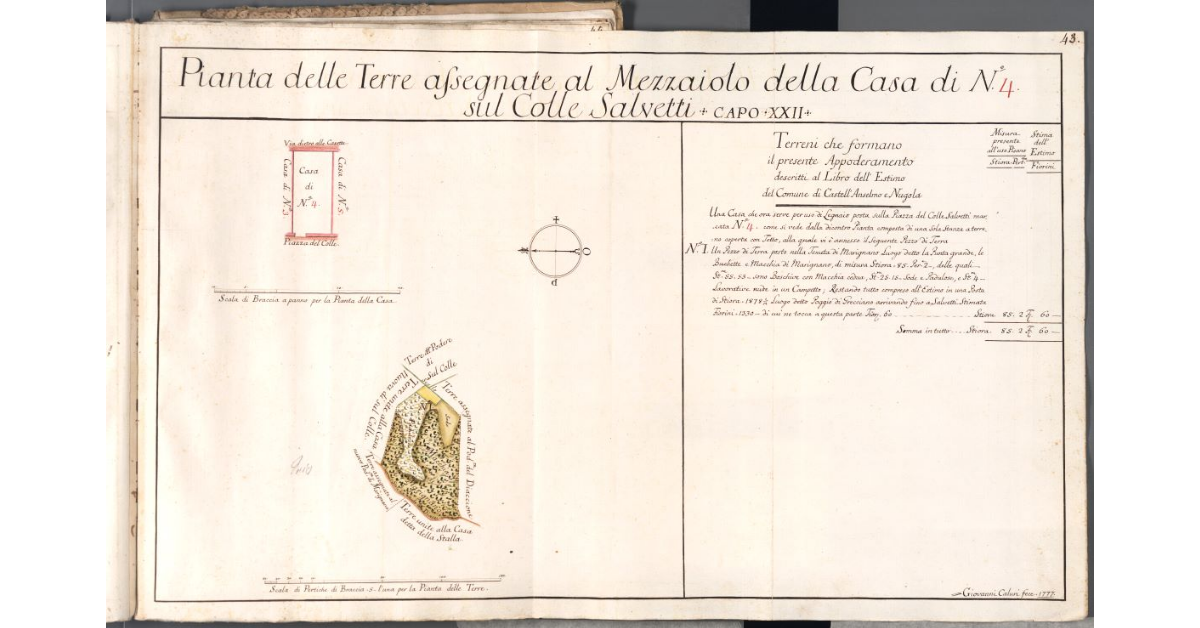 43.
Pianta delle Terre assegnate al Mezzaiolo della Casa di N.° 4.
sul Colle Salvetti + CAPO + XXII +
Via dietro alle Casette
Casa di N.° 3
Casa
di
N.° 4.
Casa di N.° 5.
Piazza del Colle.
Scala di Braccia a panno per la Pianta della Casa.
O
P
Terre del Podere
di
Sul Colle
Terre unite alla Casa
Nuova di sul Colle.
Terre assegnate al Pod.e del Diaccione
N.I
Terre unite alla Casa
detta della Stalla.
Scala di Pertiche di Braccia 5. l'una per la Pianta delle Terre.
Terreni che formano
il presente Appoderamento
descritti al Libro dell' Estimo
del Comune di Castell'Anselmo e Nugola
Misura
presente
all'uso Pisano
Stiora Per.e
Stima
dell'
Estimo
Fiorini
Una Casa che ora serve per uso di Legnaio posta sulla Piazza del Colle Salvetti mar,
cata N.° 4. come si vede dalla dicontro Pianta composta di una Sola Stanza a terre,
no coperta con Tetto, alla quale vi è annesso il seguente Pezzo di Terra
N.° I. Un Pezzo di Terra posto nella Tenuta di Marignano Luogo detto la Pineta grande, le
Buchette e Macchia di Marignano, di misura Stiora 85. Per.e 2, delle quali
St.a 55.53 sono Boschive con Macchia cedua, St.a 25.15 Sode e Padulose, e St.a 4
Lavorative nude in un Campetto; Restando tutto compreso all'Estimo in una Posta
di Stiora 1878¼ Luogo detto Poggio di Grecciano arrivando fino a Salvetti Stimata
Fiorini 1330 di cui ne tocca a questa parte Fior. 60 Stiora 85. 2 F. 60
Somma in tutto Stiora 85. 2 F. 60
Giovanni Caluri fece 1777.